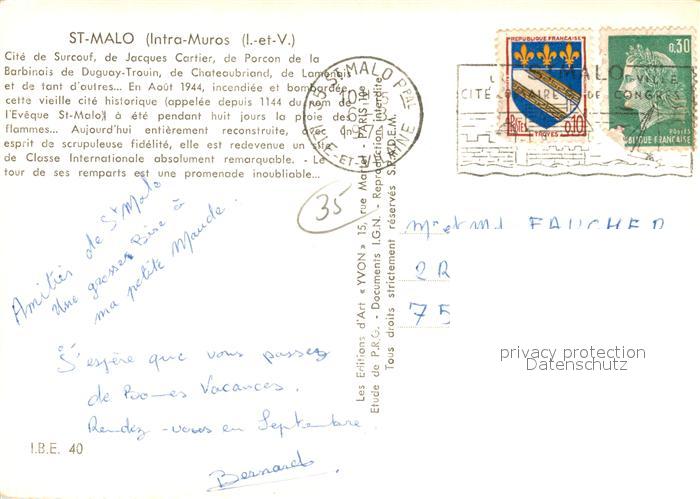 ST-MALO (Intra-Muros (I.-et-V.)
Cité de Surcouf, de Jacques Cartier, de Porcon de la
Barbinais de Duguay-Trouin, de Chateaubriand, de Lamenais
et de tant d'autres... En Août 1944, incendiée et bombardée
cette vieille cité historique (appelée depuis 1144 du nom de
l'Evêque St-Malo) à été pendant huit jours la proie des
flammes... Aujourd'hui entièrement reconstruite, avec un
esprit de scrupuleuse fidélité, elle est redevenue un site
de Classe Internationale absolument remarquable. - Le
tour de ses remparts est une promenade inoubliable...
Amitiés de St Malo
Une grosse Bise à
ma petite Maude.
J'espère que vous passez
de Bonnes Vacances.
Rendez-vous en Septembre.
Bernard
I.B.E. 40
35
Les Editions d'Art «YVON» 15, rue Martel - PARIS 10e
Etude de P.R.G. - Documents I.G.N. - Reproduction interdite
Tous droits strictement réservés S.P.A.D.E.M.
35 ST-MALO Ppal
ILLE-ET-VILAINE
ST-MALO
CITÉ DE CONGRÈS
REPUBLIQUE FRANCAISE
POSTES
TROYES
0,10
0,30
POSTES
REPUBLIQUE FRANÇAISE
Mr et Mme FAUCHER
2 R
75
privacy protection
Datenschutz